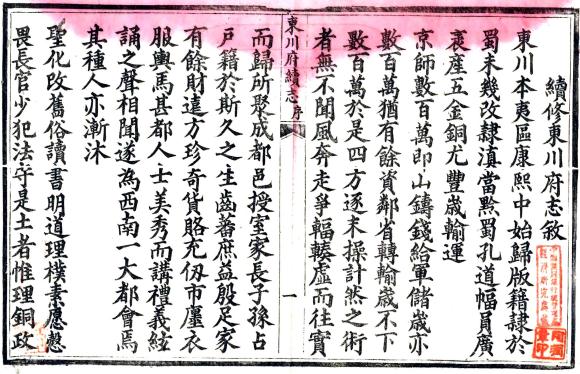 續修東川府志敘
東川本夷區康熙中始歸版籍隸於
蜀未幾改隸滇當黔蜀孔道幅員廣
袤產五金銅尤豐歲輸運
京師數百萬即山鑄錢給軍儲歲亦
數百萬猶有餘資鄰省轉輸歲不下
數百萬於是四方逐末操計然之術
者無不聞風奔走爭輻輳虛而往實
東川府續志 序
一
而歸所聚成都邑授室家長子孫占
戶籍於斯久之生齒蕃庶益殷足家
有餘財遠方珍奇貨賂充仞市廛衣
服輿馬甚都人士美秀而講禮義絃
誦之聲相聞遂為西南一大都會焉
其種人亦漸沐
聖化改舊俗讀書明道理樸素愿慤
畏長官少犯法守是土者惟理銅政